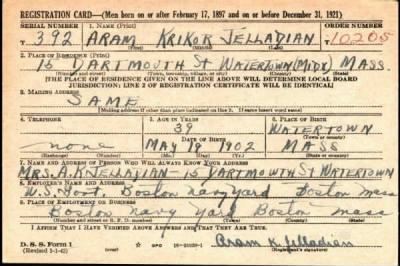 REGISTRATION CARD—(Men born on or after February 17, 1897 and on or before December 31, 1921)
SERIAL NUMBER 1. NAME (Print) ORDER NUMBER
T 392 ARAM KRIKOR JELLADIAN 10205
(First) (Middle) (Last)
2. PLACE OF RESIDENCE (Print)
15 DARTMOUTH ST WATERTOWN (MIDX) MASS
(Number and street) (Town, township, village, or city) (County) (State)
[THE PLACE OF RESIDENCE GIVEN ON THE LINE ABOVE WILL DETERMINE LOCAL BOARD
JURISDICTION; LINE 2 OF REGISTRATION CERTIFICATE WILL BE IDENTICAL]
3. MAILING ADDRESS
SAME
[Mailing address if other than place indicated on line 2. If same insert word same]
4. TELEPHONE 5. AGE IN YEARS 6. PLACE OF BIRTH
39 WATERTOWN
DATE OF BIRTH (Town or county)
none MAY 19 1902 MASS
(Exchange) (Number) (Mo.) (Day) (Yr.) (State or country)
7. NAME AND ADDRESS OF PERSON WHO WILL ALWAYS KNOW YOUR ADDRESS
MRS. A.K. JELLADIAN - 15 DARTMOUTH ST WATERTOWN
8. EMPLOYER'S NAME AND ADDRESS
U.S. Govt. Boston Navy Yard Boston Mass
9. PLACE OF EMPLOYMENT OR BUSINESS
Boston Navy Yard Boston Mass
(Number and street or R. F. D. number) (Town) (County) (State)
I AFFIRM THAT I HAVE VERIFIED ABOVE ANSWERS AND THAT THEY ARE TRUE.
D. S. S. Form 1
(Revised 1-1-42) GPO Aram K. Jelladian
(Registrant's signature)